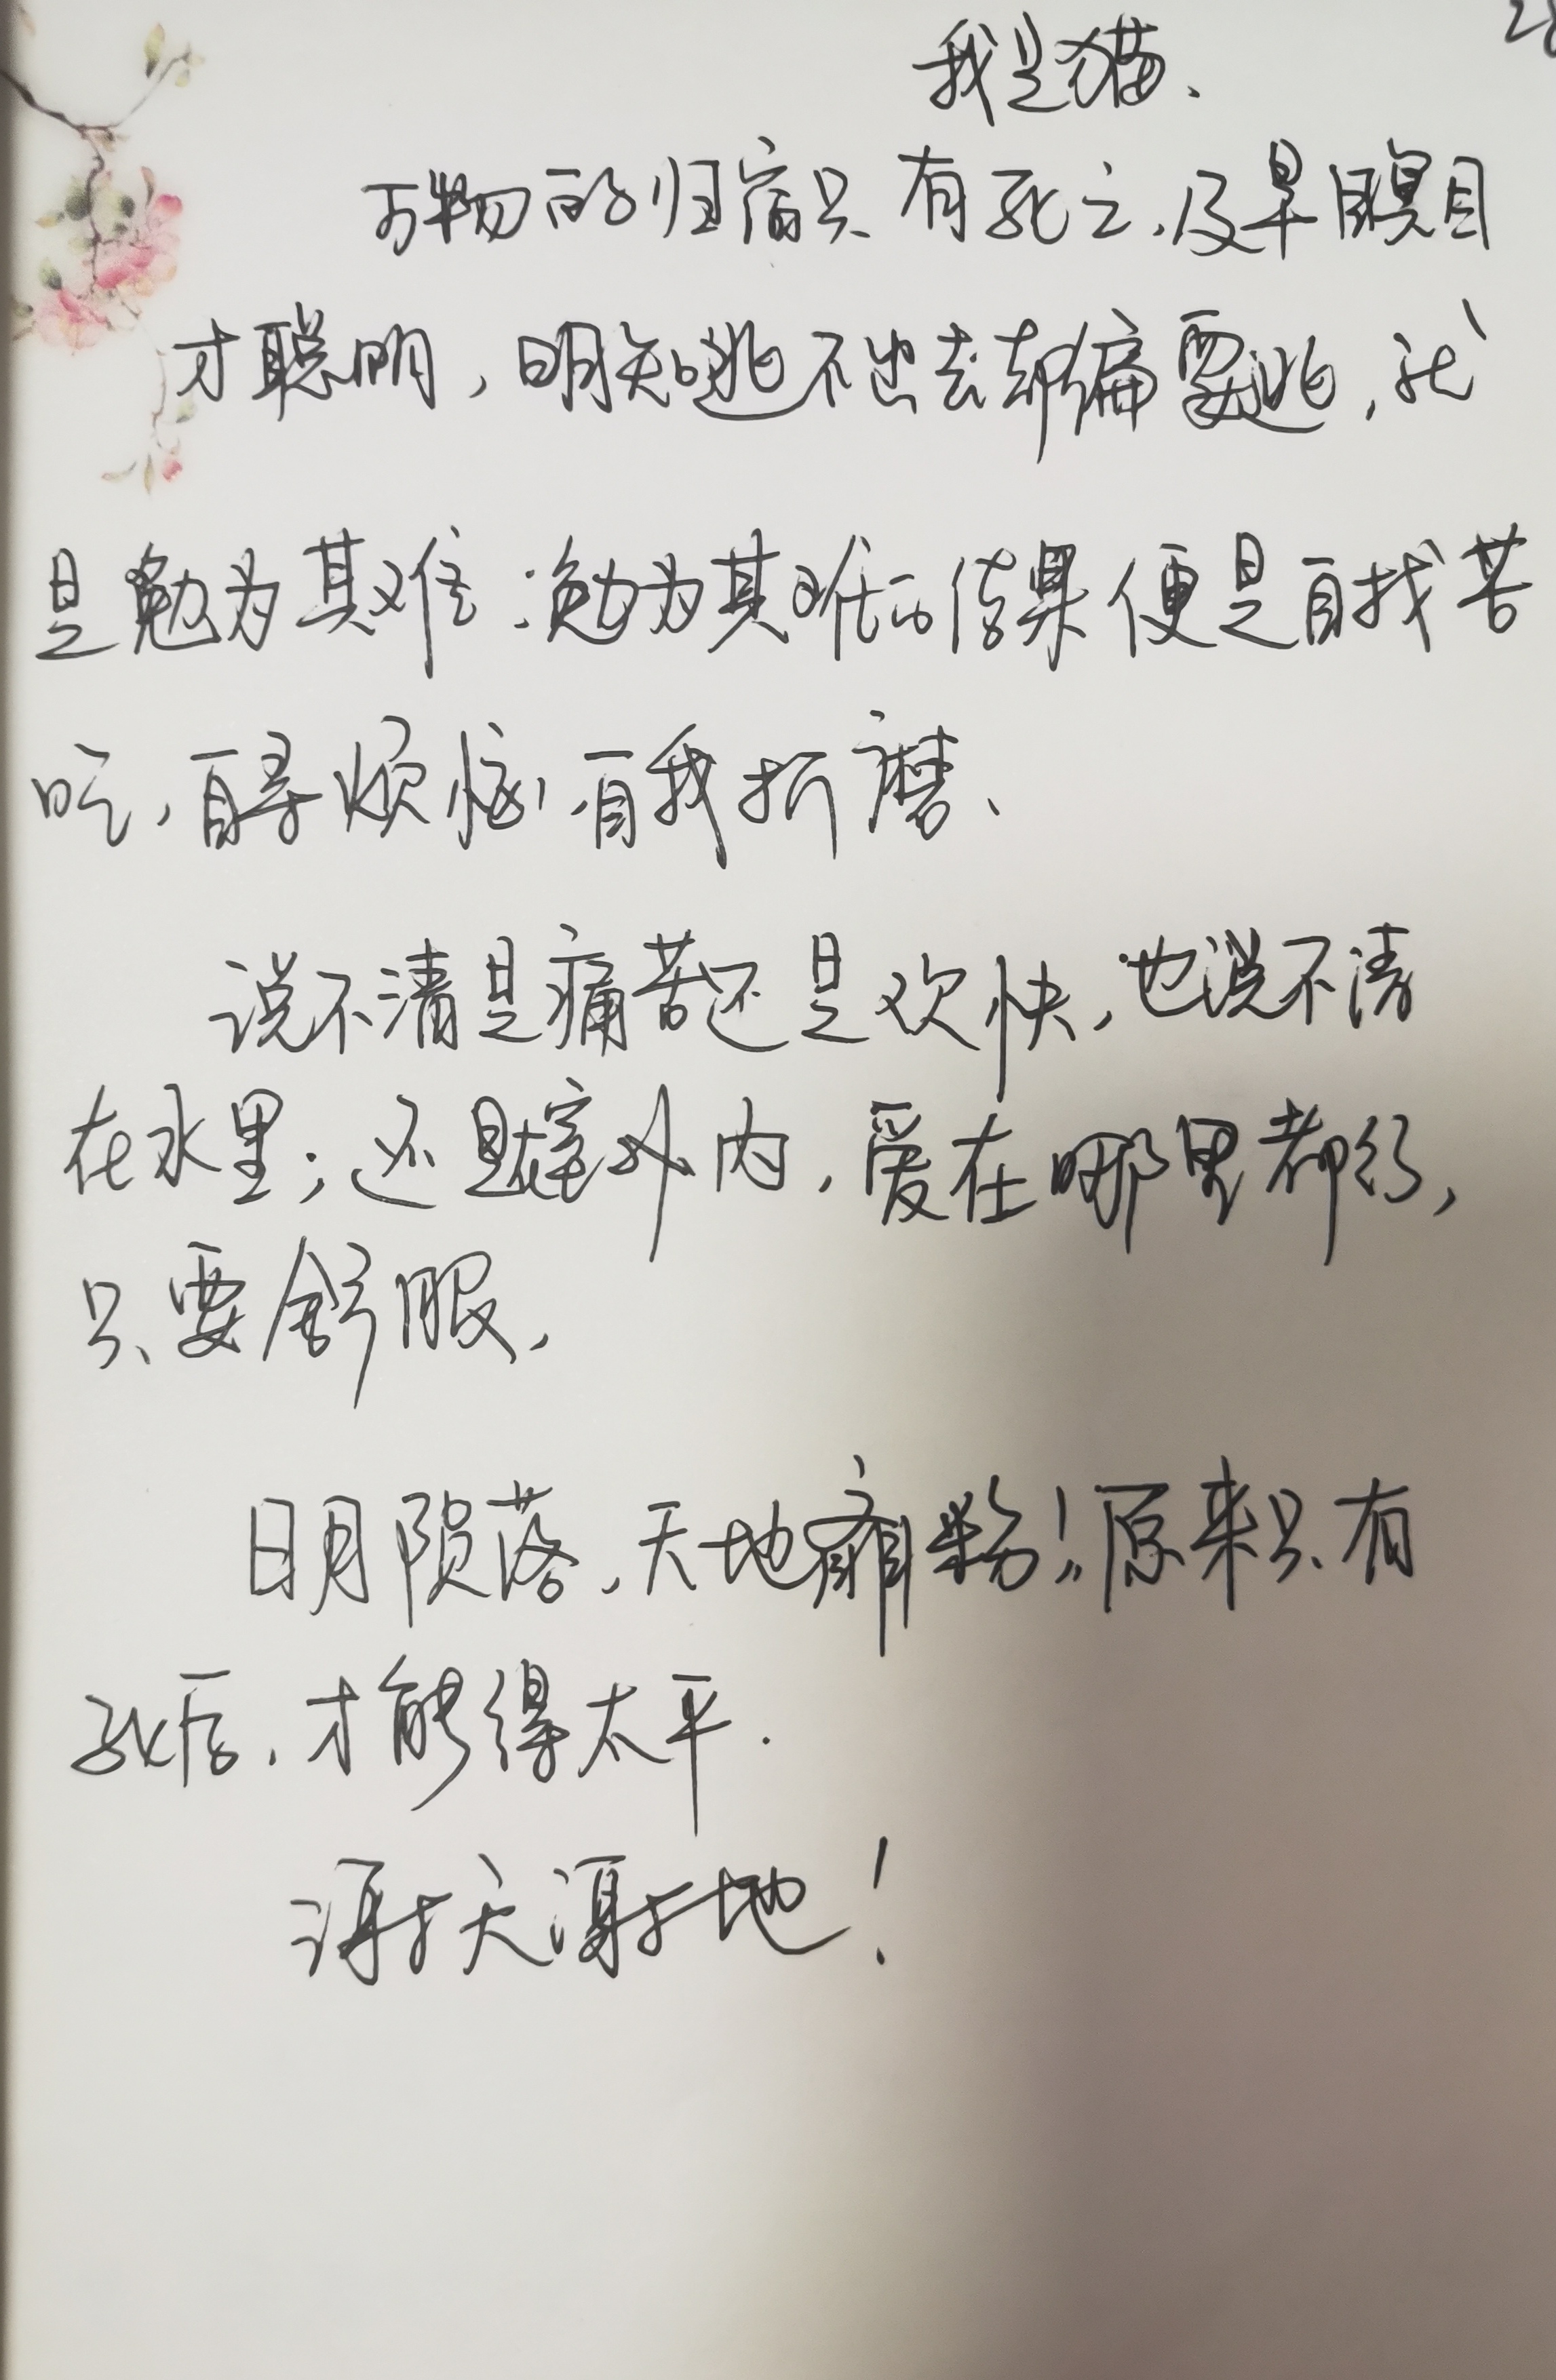 我是猫、
万物的归宿只有死亡,及早瞑目
才聪明,明知逃不出去却偏要逃,就
是勉为其难:勉为其难的结果便是自找苦
吃,自寻烦恼,自我折磨、
说不清是痛苦还是欢快,也说不清
在水里;还是在室外内,爱在哪里都行,
只要舒服,
日月陨落,天地粉!原来只有
死后,才能得太平.
谢天谢地!